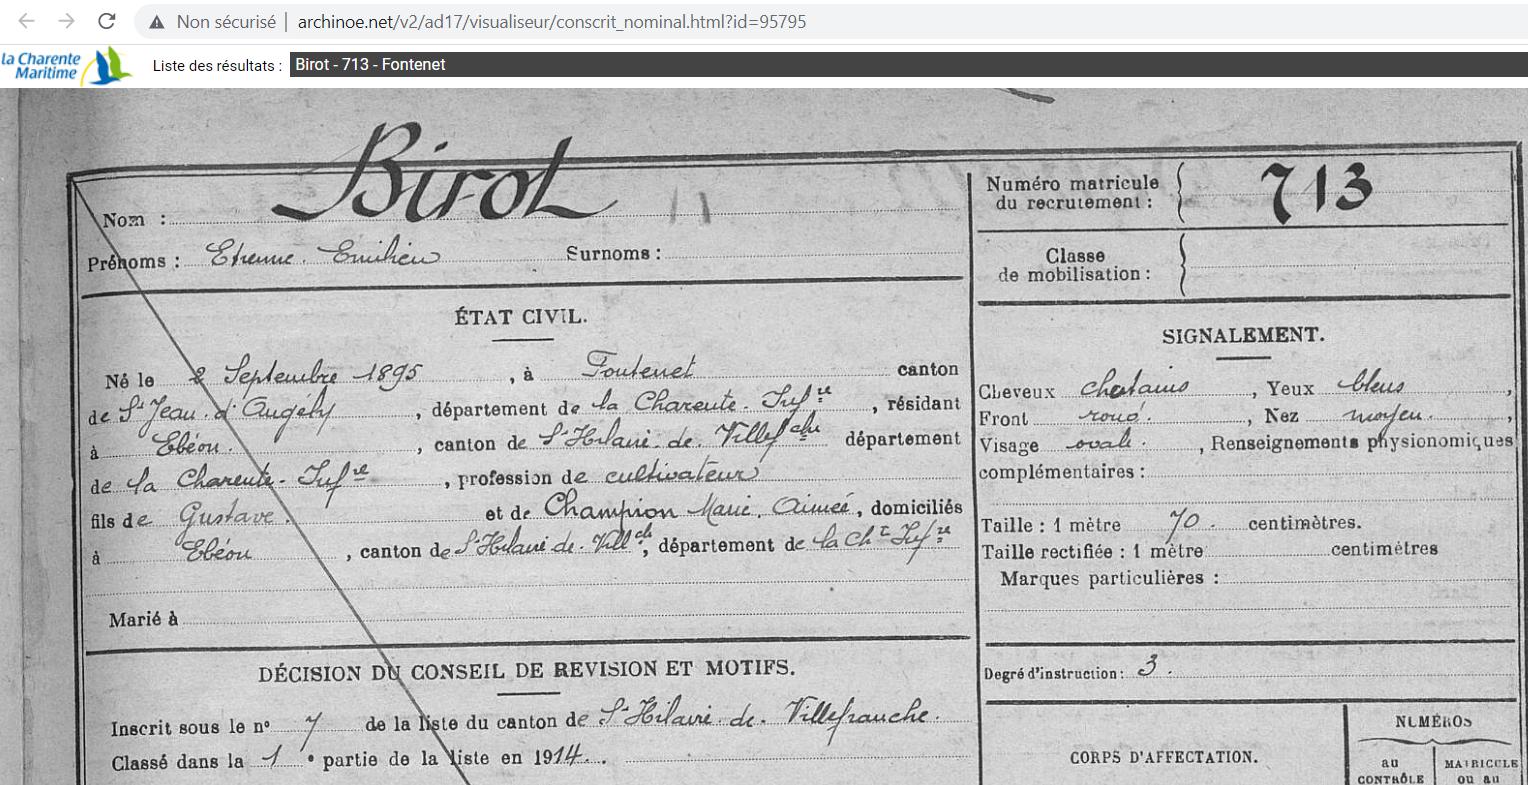 Non sécurisé | archinoe.net/v2/ad17/visualiseur/conscrit_nominal.html?id=95795
la Charente
Maritime
Liste des résultats : Birot - 713 - Fontenet
Nom : Birot
Prénoms : Etienne Emilien Surnoms :
Numéro matricule
du recrutement : 713
Classe
de mobilisation :
ÉTAT CIVIL.
Né le 2 Septembre 1895, à Fontenet canton
de St Jean d'Angély, département de la Charente Infre, résidant
à Ebéon, canton de St Hilaire de Villefche département
de la Charente-Infre, profession de cultivateur
fils de Gustave. et de Champion Marie Aimée, domiciliés
à Ebéon, canton de St Hilaire de Villch, département de la Chte Infre
Marié à
SIGNALEMENT.
Cheveux chatains, Yeux bleus,
Front rond., Nez moyen.,
Visage ovale., Renseignements physionomiques
complémentaires :
Taille : 1 mètre 70. centimètres.
Taille rectifiée : 1 mètre centimètres
Marques particulières :
Degré d'instruction : 3.
DÉCISION DU CONSEIL DE REVISION ET MOTIFS.
Inscrit sous le n° 7 de la liste du canton de St Hilaire de Villefranche.
Classé dans la 1e partie de la liste en 1914.
CORPS D'AFFECTATION.
NUMÉROS
au
CONTRÔLE
MATRICULE
ou au